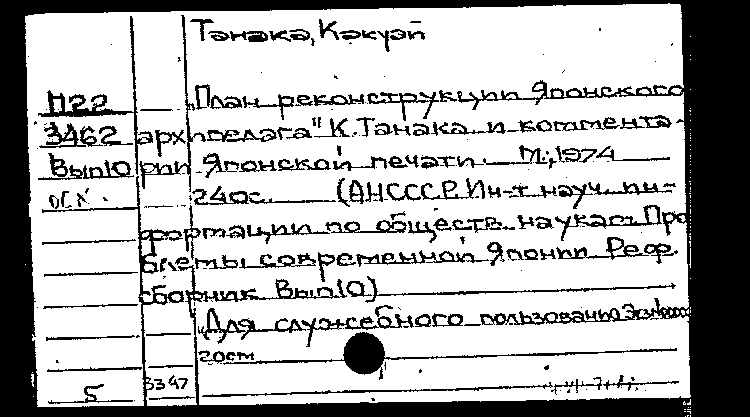 Танака, Какуэй
П22 „План реконструкции Японского
3462 архипелага" К.Танака и коммента-
Вып10 рии Японской печати. М., 1974
240с. (АН СССР. Ин-т науч. ин-
формации по обществ. наукам. Про
блемы современной Японии Реф.
сборник Вып10)
„Для служебного пользования
5 3347